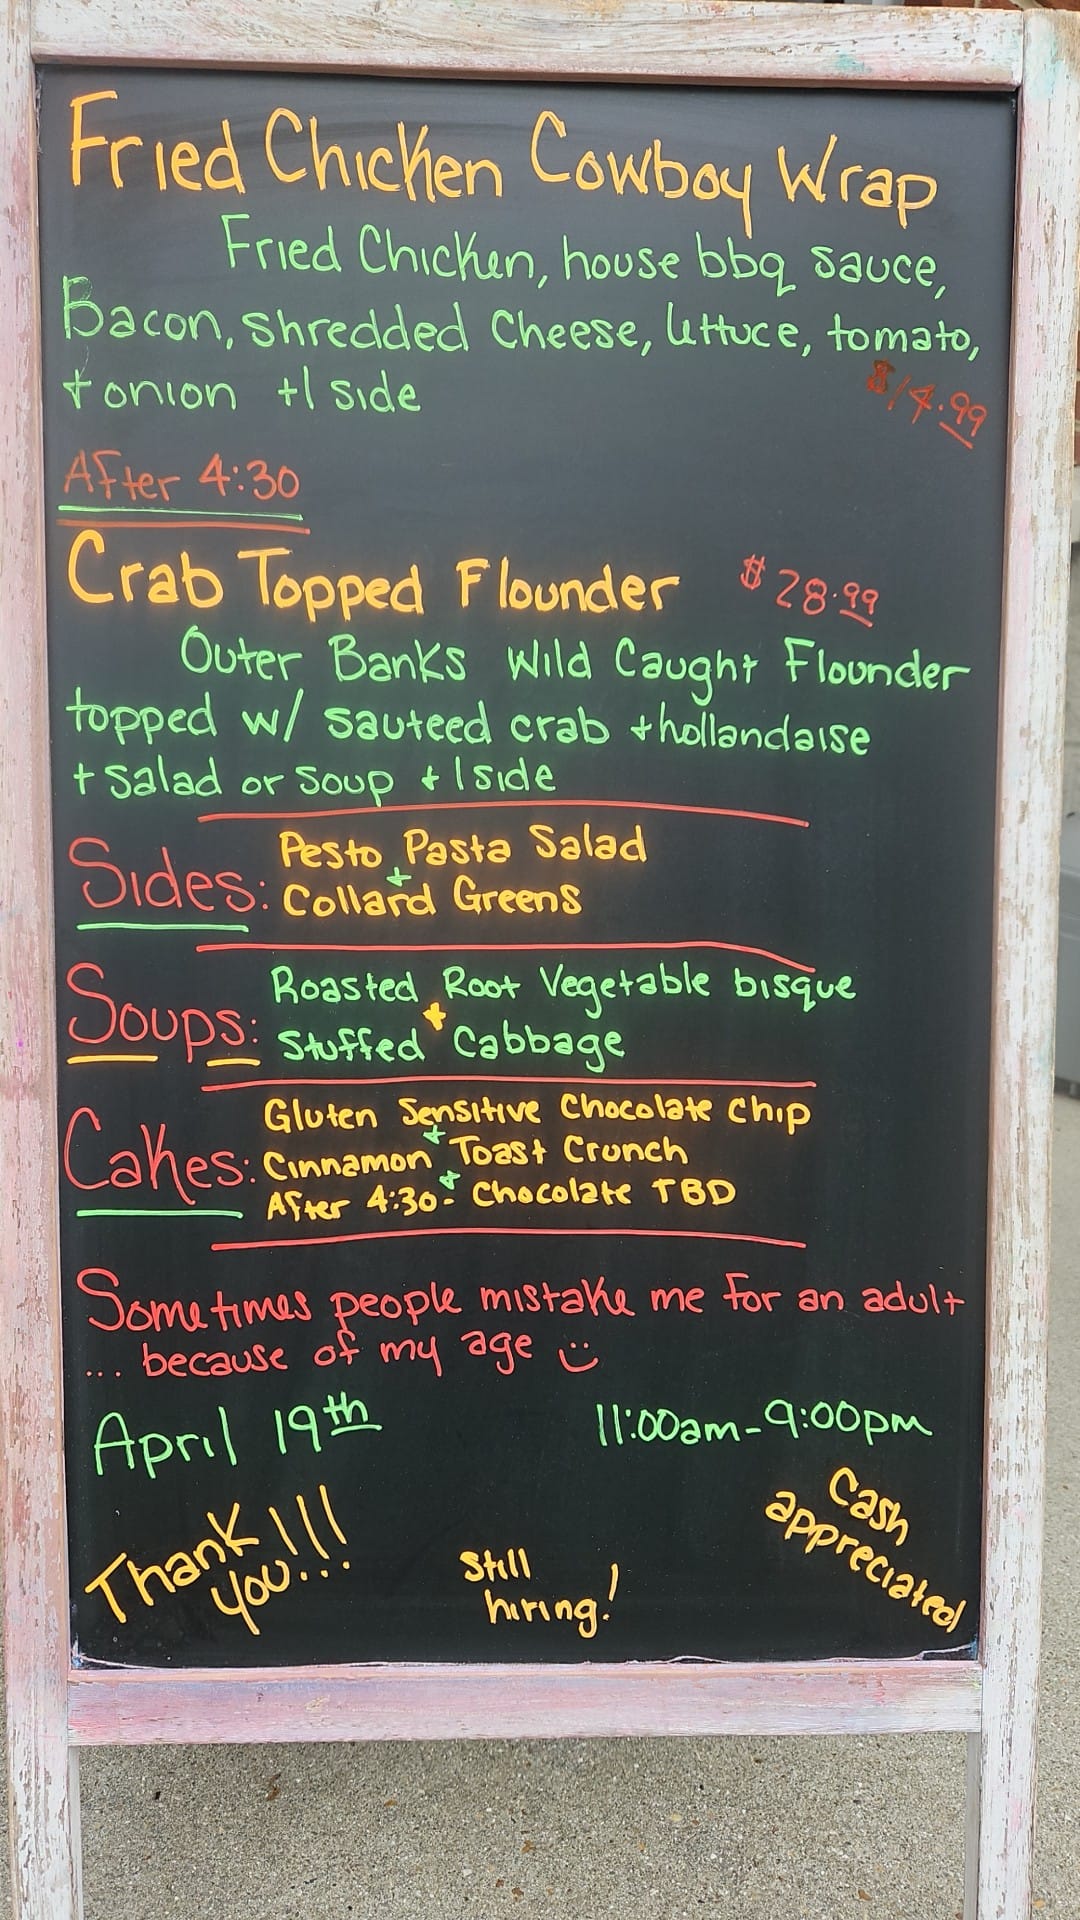 Fried Chicken Cowboy Wrap
Fried Chicken, house bbq sauce,
Bacon, shredded Cheese, lettuce, tomato,
+ onion +1 side
$14.99
After 4:30
Crab Topped Flounder $28.99
Outer Banks Wild Caught Flounder
topped w/ sauteed crab + hollandaise
+ salad or soup + 1 side
Sides: Pesto Pasta Salad
+
Collard Greens
Soups: Roasted Root Vegetable bisque
+
Stuffed Cabbage
Cakes: Gluten Sensitive Chocolate Chip
+
Cinnamon Toast Crunch
+
After 4:30- Chocolate TBD
Sometimes people mistake me for an adult
... because of my age :)
April 19th 11:00am-9:00pm
Thank
you!!!
Still
hiring!
Cash
appreciated